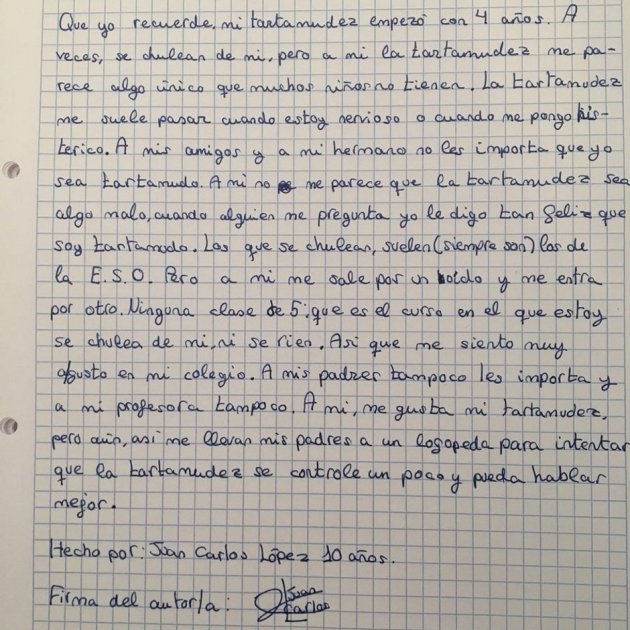 Que yo recuerde, mi tartamudez empezó con 4 años. A
veces, se chulean de mi, pero a mi la tartamudez me pa-
rece algo único que muchos niños no tienen. La tartamudez
me suele pasar cuando estoy nervioso o cuando me pongo his-
terico. A mis amigos y a mi hermano no les importa que yo
sea tartamudo. A mi no me parece que la tartamudez sea
algo malo, cuando alguien me pregunta yo le digo tan feliz que
soy tartamudo. Los que se chulean, suelen (siempre son) los de
la E.S.O. Pero a mi me sale por un oido y me entra
por otro. Ninguna clase de 5: que es el curso en el que estoy
se chulea de mi, ni se rien. Asi que me siento muy
agusto en mi colegio. A mis padres tampoco les importa y
a mi profesora tampoco. A mi, me gusta mi tartamudez,
pero aún, así me llevan mis padres a un logopeda para intentar
que la tartamudez se controle un poco y pueda hablar
mejor.
Hecho por: Juan Carlos López 10 años.
Firma del autor/a: Juan
Carlos